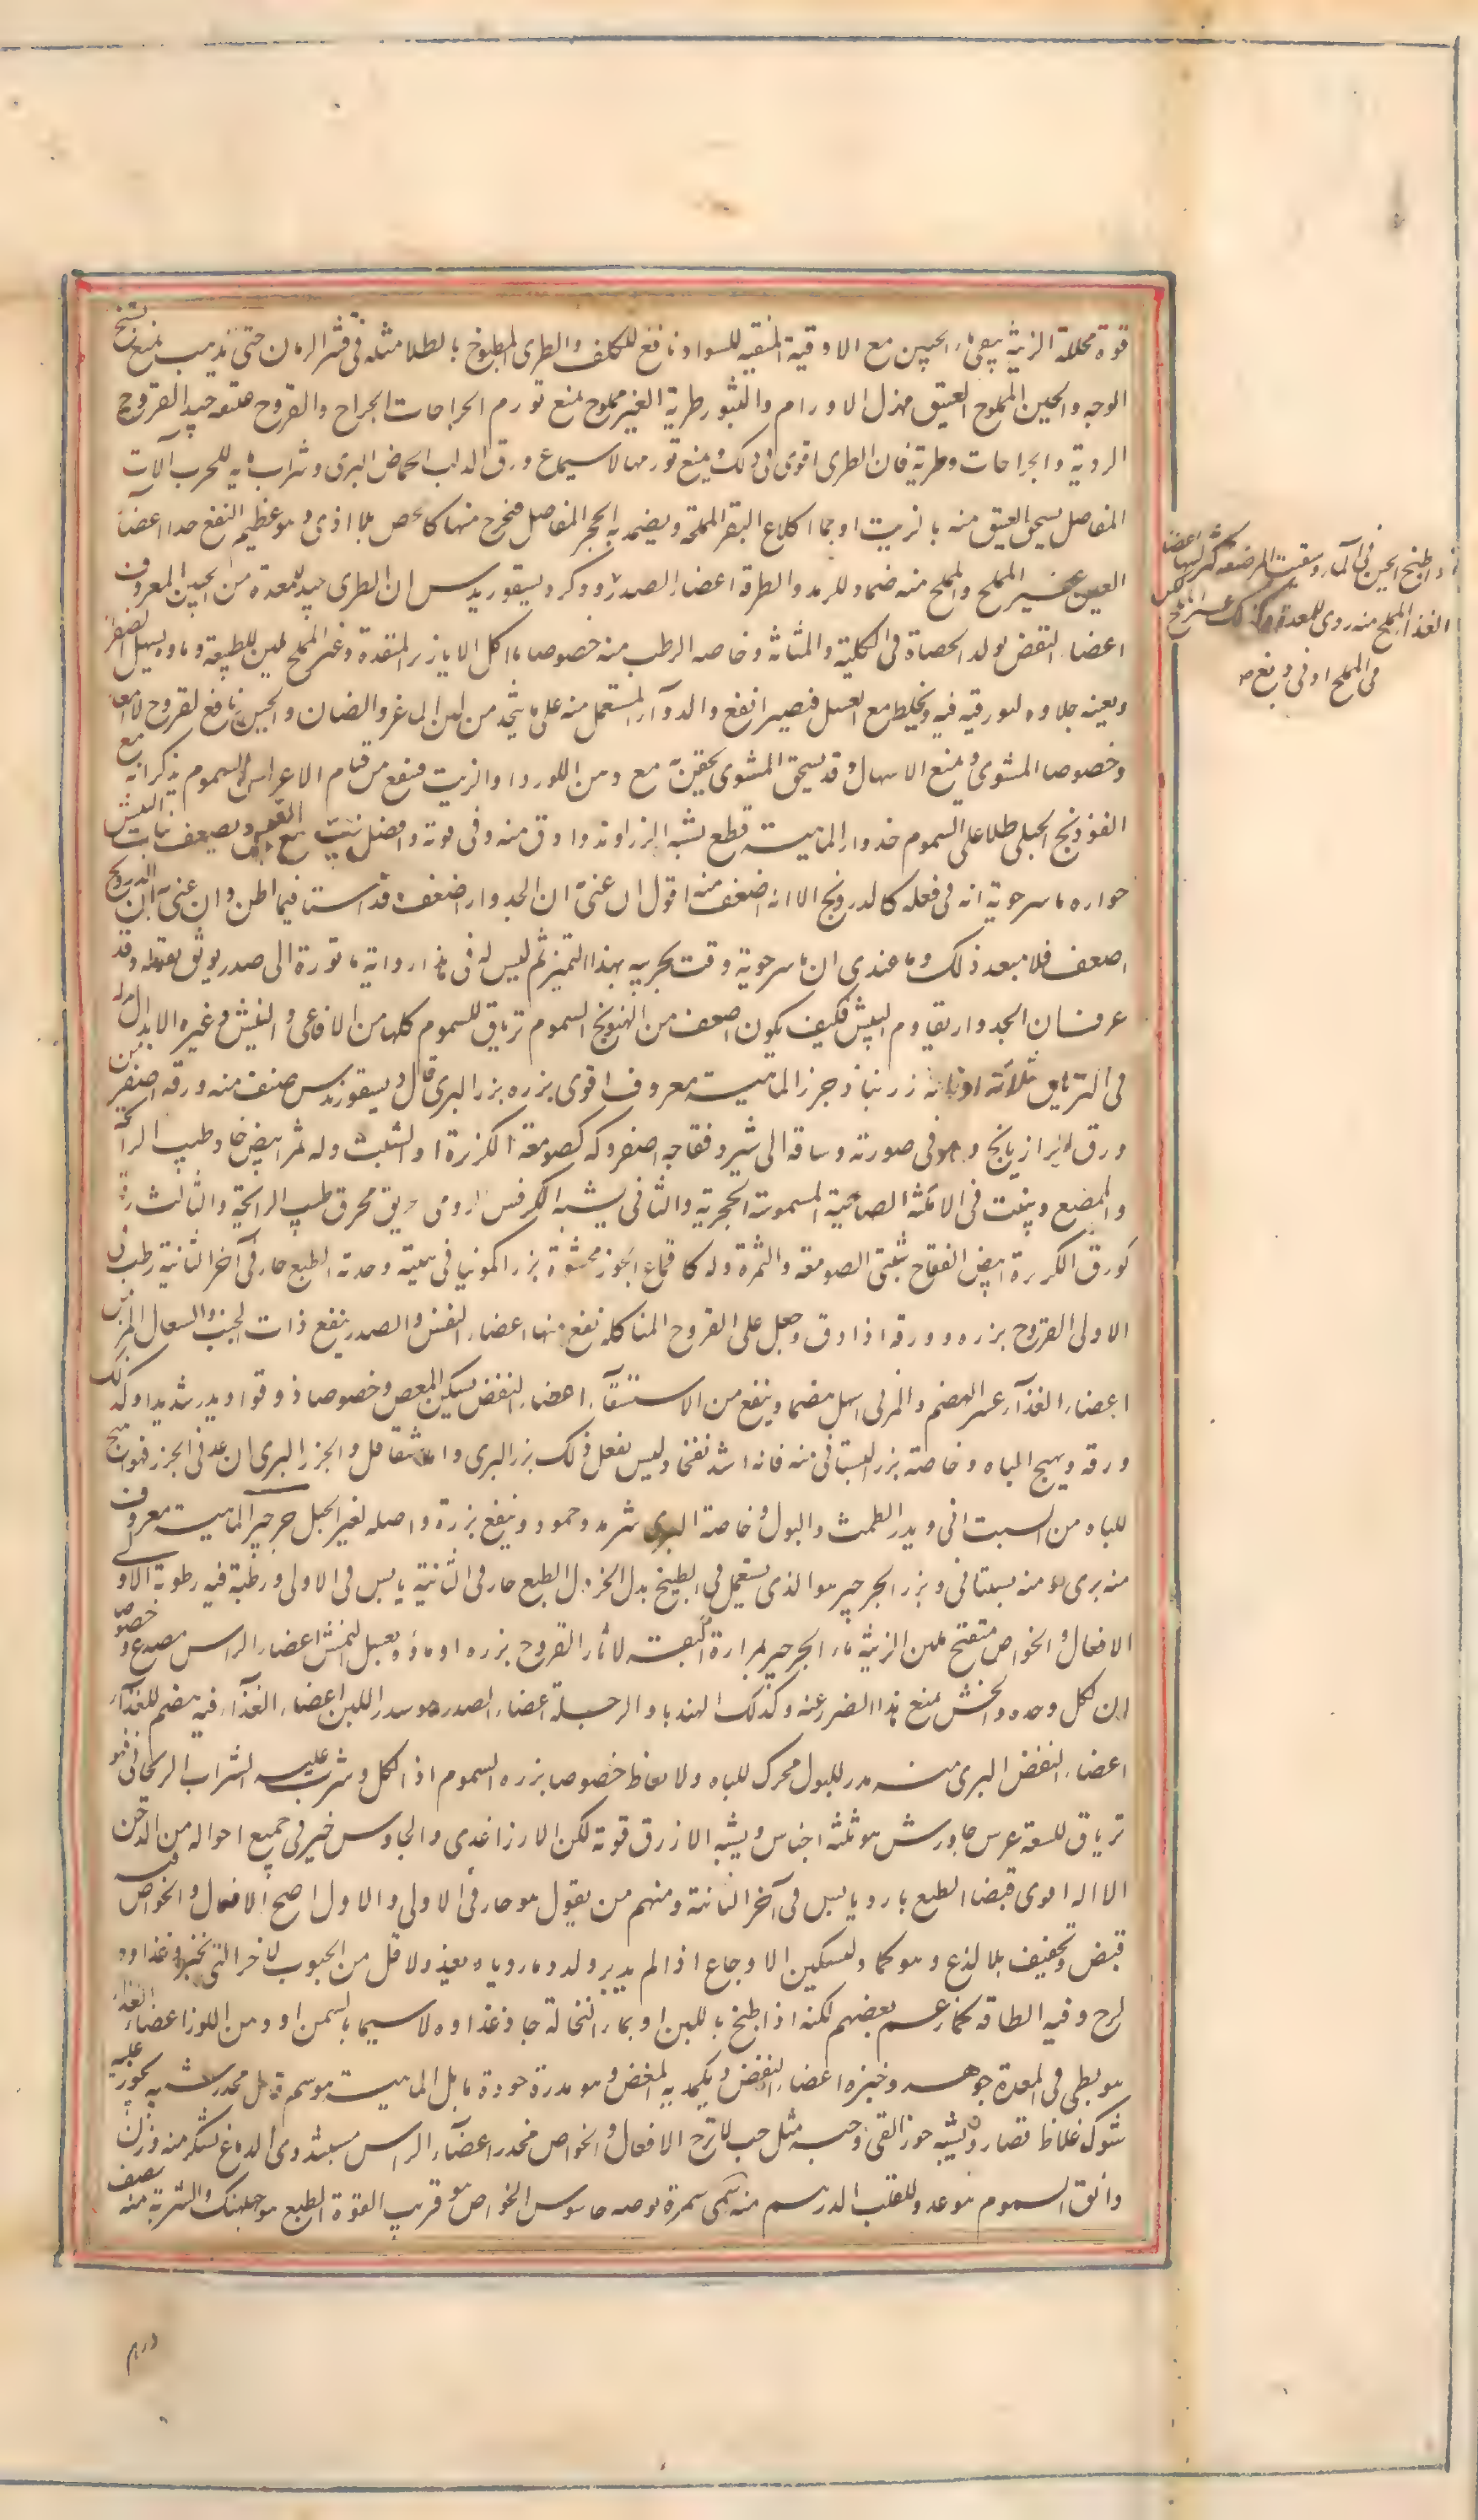 قوة محللة الزينة يبقى ماء الجبن مع الاوقية المنقية للسواد نافع للكلف والطرى المطبوخ بالطلا مثله فى قشر الرمان حتى تذهب يمنع تشنج
الوجه والجبن المملوح العتيق مهزل الاورام والبثور طرية الغير مملوح يمنع تورم الجراحات الجراح والقروح عتيقه جيد القروح
الردية والجراحات وطرية فان الطرى اقوى فى ذلك ويمنع تورمها لاسيما مع ورق الدلب الحماض البرى وشراب للحرب الآت
المفاصل يسحق العتيق منه بالزيت او بماء اكارع البقر المملحة ويضمد به الحجر المفاصل فيخرج منها كالجص بلا اذى وهو عظيم النفع جدا اعضاء
العين غير المملح والمملح منه ضماد للرمد والطرفة اعضاء الصدر وذكر ديسقوريدس ان الطرى جيد للمعدة من الجبن المعروف
اعضاء النفض يولد الحصاة فى الكلية والمثانة وخاصه الرطب منه خصوصا ما اكل الابازير المنقدة وغير المملح ملين للطبيعة وماوه يسهل الصفراء
ويعينه جلاوه لبورقيه فيه ويخلط مع العسل فيصير انفع والدوآء المستعمل منه على ما يتخذ من لبن الماعز والضان والجبن نافع لقروح الامعاء
وخصوصا المشوى ويمنع الاسهال وقد يسحق المشوى يحقن به مع دهن اللورد او الزيت فينفع من قيام الاعراس السموم يذكر انه مع
الفوذنج الجبلى طلا على السموم جدوار الماهية قطع يشبه الزراوند وادق منه وفى قوته وافضل ينبت مع البيش ويضعف نبات البيش
جواره ماسرجوية انه فى فعله كالدرونج الا انه اضعف منه اقول ان عنى به ان الجدوار اضعف فقد اسآء فيما اظن وان عنى به ان الدرونج
اضعف فلا يبعد ذلك وما عندى ان ماسرجوية وقت بجربيه بهذا التميز ثم ليس له فى هذا رواية ماثورة الى صدر يوثق بقوله وقد
عرف ان الجدوار يقاوم البيش فكيف يكون اضعف من الدرونج السموم ترياق للسموم كلها من الافاعى والبيش وغيره الابدال بدله
فى الترياق ثلاثة اوزانه زرنباد جزر الماهية معروف اقوى بزره بزر البرى قال ديسقوريدس صنف منه ورقه اصغر من
ورق الرازيانج وهو فى صورته وساقه الى شبر وفقاحه اصفر وله كصومعة الكزبرة او الشبث وله ثمر ابيض حاد طيب الرائحة
والمضغ وينبت فى الامكنة الضاحية المسموتة الحجرية والثانى يشبه الكرفس الرومى حريق محرق طيب الرائحة والثالث ورقه
كورق الكزبرة ابيض الفقاح شبثى الصومعة والثمرة وله كاقماع الجوز محشوة بزر اكمونيا فى هيئة وحدته الطبع حار فى آخر الثانية رطب فى
الاولى القروح بزره وورقه اذا دق وجعل على القروح المتاكلة نفع منها اعضاء النفس والصدر ينفع ذات الجنب والسعال المزمن
اعضاء الغذآء عسر الهضم والمربى اسهل هضما وينفع من الاستسقآء اعضاء النفض يسكن المغص وخصوصا ذوقوا ويدر شديدا وكذلك
ورقه ويهيج الباه وخاصة بزر البستانى منه فانه اشد نفخا وليس يفعل ذلك بزر البرى واما شقاقل والجزر البرى ان عد فى الجزر فهو اهيج
للباه من البستانى ويدر الطمث والبول وخاصة البرى شربه وحمود وينفع بزره واصله لغير الحبل جرجير الماهية معروف
منه برى ومنه بستانى وبزر الجرجير هو الذى يستعمل فى الطبيخ بدل الخردل الطبع حار فى الثانية يابس فى الاولى ورطبه فيه رطوبة الاولى
الافعال والخواص منفخ ملين الزينة ماء الجرجير بمرارة البقر لاثار القروح بزره او ماؤه بعسل للنمش اعضاء الراس مصدع وخصوصا
ان اكل وحده والخس يمنع هذا الضرر عنه وكذلك الهندبا والرجلة اعضاء الصدر هو مدر اللبن اعضاء الغذآء فيه هضم للغذآء
اعضاء النفض البرى منه مدر للبول محرك للباه والانعاظ خصوصا بزره السموم اذا اكل وشرب عليه الشراب الريحانى فهو
ترياق للسعة عرس جاورس هو ثلثه اجناس ويشبه الارز فى قوته لكن الارز اغذى والجاورس خير فى جميع احواله من الدخن
الا انه اقوى قبضا الطبع بارد يابس فى آخر الثانية ومنهم من يقول هو حار فى الاولى والاول اصح الافعال والخواص فيه
قبض وتجفيف بلا لذع وهو كماد لتسكين الاوجاع اذا لم يدبر ولد دما رديا ويغذو لاقل من الحبوب الاخر التى تخبز وغذاوه
لزج وفيه لطافة كما زعم بعضهم لكنه اذا طبخ باللبن او بماء النخالة جاد غذاوه لاسيما بالسمن او دهن اللوز اعضاء الغذاء
هو بطى فى المعدة جوهره وخبزه اعضاء النفض ويكمد به للمغص وهو مدرة جوزة ماثل الماهية هو سم مخدر شبيه بجوز عليه
شوك غلاظ قصار ويشبه جوز القى وحبه مثل حب الاترج الافعال والخواص مخدر اعضآء الراس مسبت ردى للدماغ يسكر منه وزن دانق
وانق السموم هو عدو للقلب الدرهم منه سم الخواص هو قريب القوة الطبع هو جبلهنك والشربة منه نصف
درهم
اذا طبخ الجبن فى المآء وسقيت المرضعة كثر لبنها اعضاء
الغذاء المملح منه ردى للمعدة وكذلك غير المملح
فى المملح ادنى دبغ